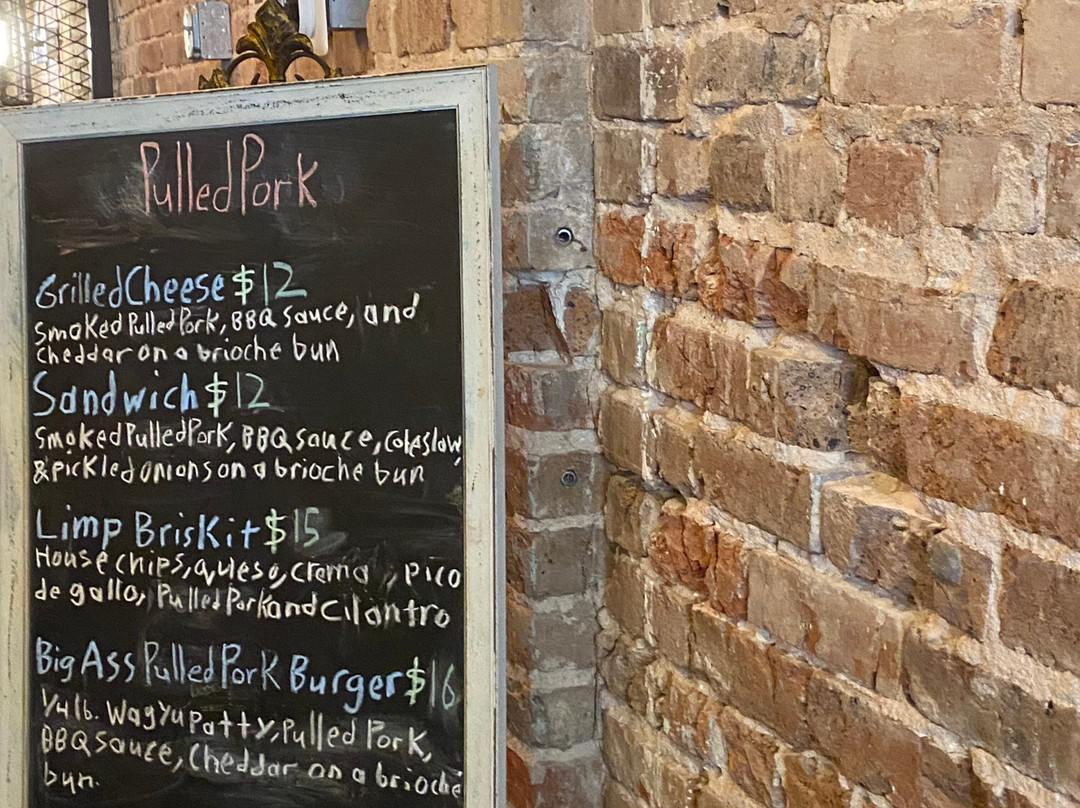 Pulled Pork
Grilled Cheese $12
Smoked Pulled Pork, BBQ sauce, and
cheddar on a brioche bun
Sandwich $12
Smoked Pulled Pork, BBQ sauce, coleslaw,
& pickled onions on a brioche bun
Limp BrisKit $15
House chips, queso, crema, pico
de gallo, Pulled Pork and cilantro
Big Ass Pulled Pork Burger $16
1/4 lb. Wagyu Patty, Pulled Pork,
BBQ sauce, Cheddar on a brioche
bun.